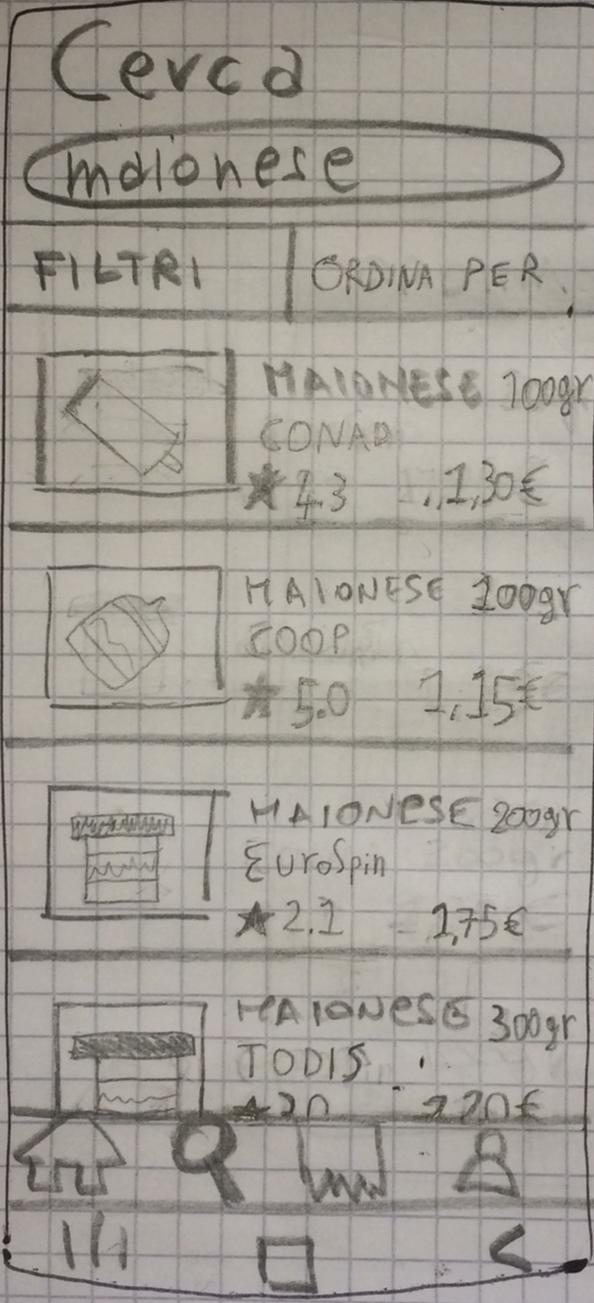 Cerca
maionese
FILTRI
ORDINA PER
MAIONESE 100gr
CONAD
★ 4.3 1,30€
MAIONESE 100gr
COOP
★ 5.0 1,15€
MAIONESE 200gr
EuroSpin
★ 2.1 1,75€
MAIONESE 300gr
TODIS